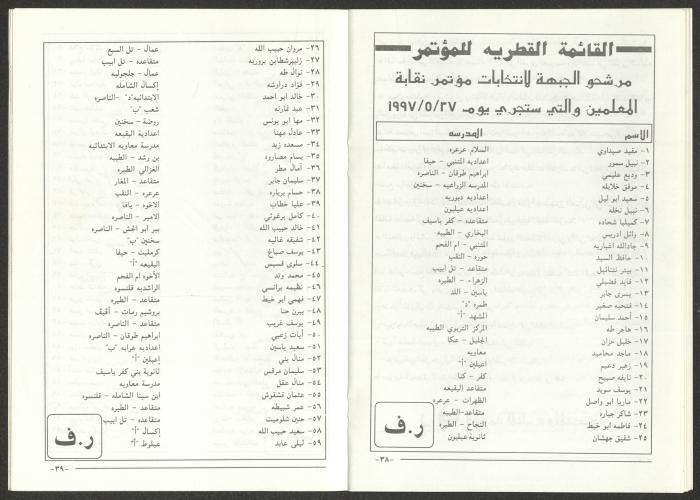 القائمة القطريه للمؤتمر
مرشحو الجبهة لانتخابات مؤتمر نقابة
المعلمين والتي ستجري يوم ١٩٩٧/٥/٢٧
الاسم المدرسه
١- مفيد صيداوي السلام عرعره
٢- نبيل سمور اعداديه المتنبي - حيفا
٣- وديع عليمي ابراهيم طوقان - الناصره
٤- موفق خلايله المدرسه الزراعيه - سخنين
٥- سعيد ابو ليل اعداديه دبوريه
٦- نبيل نخله اعداديه عيلبون
٧- كميليا شحاده متقاعده - كفر ياسيف
٨- وائل ادريس البخاري - الطيبه
٩- جادالله اغباريه المتنبي - ام الفحم
١٠- حافظ السيد حوره - النقب
١١- بيتر نتنائيل متقاعد - تل ابيب
١٢- فايد فضيلي الزهراء - الطيره
١٣- يسري جابر ياسين - اللد
١٤- فتحيه صغير طمره "د"
١٥- أحمد سليمان المشهد "أ"
١٦- هاجر طه المركز التربوي الطيبه
١٧- خليل حزان الجليل - عكا
١٨- ماجد محاميد معاويه
١٩- زهير دعيم اعبلين "أ"
٢٠- نايفه صبيح كفر - كنا
٢١- يوسف سويد متقاعد البقيعه
٢٢- ماريا ابو واصل الظهرات - عرعره
٢٣- شاكر جباره متقاعد-الطيبه
٢٤- فاطمه ابو خيط النجاح - الطيره
٢٥- شفيق جهشان ثانوية عيلبون
ر.ف
-٣٨-
٢٦- مروان حبيب الله عمال - تل السبع
٢٧- زليبرشطاين بروريه متقاعده - تل ابيب
٢٨- نوال طه عمال - جلجوليه
٢٩- فؤاد دراوشه إكسال الشامله
٣٠- خالد ابو احمد الابتدائيه"د" -الناصره
٣١- عبد نمارنه شعب "ب"
٣٢- مها ابو يونس روضة - سخنين
٣٣- عادل مهنا اعدادية البقيعه
٣٤- مسعده زيد مدرسة معاويه الابتدائيه
٣٥- بسام مصاروه بن رشد - الطيبه
٣٦- آمال مطر الغزالي الطيره
٣٧- سليمان جابر متقاعد - المغار
٣٨- حسام برباره عرعره - النقب
٣٩- عليا خطاب الاخوه - يافا
٤٠- كامل برغوثي الامير - الناصره
٤١- خالد حبيب الله بير ابو الجش - الناصره
٤٢- شفيقه غاليه سخنين "ب"
٤٣- يوسف صباغ كرمليت - حيفا
٤٤- سلوى قسيس البقيعه "أ"
٤٥- محمد وتد الأخوه ام الفحم
٤٦- نظيمه برانسي الراشديه قلنسوه
٤٧- فهمي ابو خيط متقاعد - الطيره
٤٨- بيرن حنا بروشيم رمات - أفيف
٤٩- يوسف غريب متقاعد - الناصره
٥٠- آيات زعبي ابراهيم طوقان - الناصره
٥١- سعيد ياسين اعداديه عرابه "ب"
٥٢- منال بني إعبلين "أ"
٥٣- سليمان مرقس ثانوية بني كفر ياسيف
٥٤- منال عقل مدرسة معاويه
٥٥- عثمان تشقوش ابن سينا الشامله - قلنسوه
٥٦- عمر شبيطه متقاعد - الطيره
٥٧- حنين شلوميت متقاعده - تل ابيب
٥٨- سعيد حبيب الله إكسال "أ"
٥٩- ليلى عابد عبلوط "أ"
ر.ف
-٣٩-